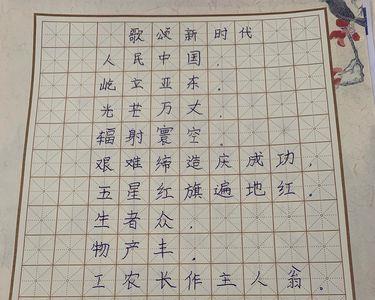 歌颂新时代
人民中国，
屹立亚东。
光芒万丈，
辐射寰空。
艰难缔造庆成功，
五星红旗遍地红。
生者众，
物产丰。
工农长作主人翁。